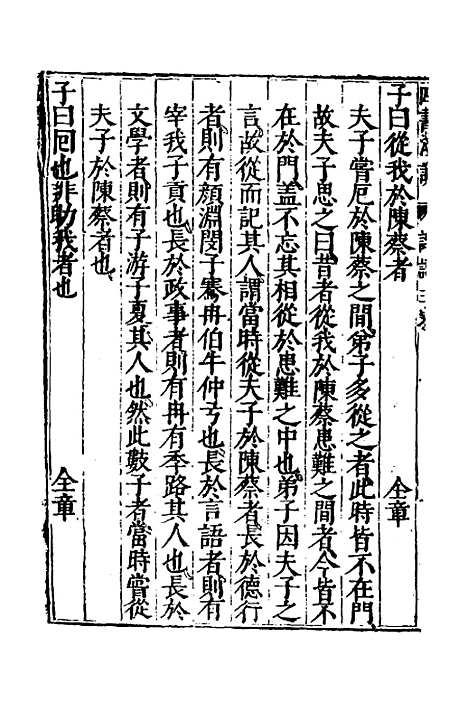 子曰從我於陳蔡者　全章
夫子嘗厄於陳蔡之間弟子多從之者此時皆不在門
故夫子思之曰昔者從我於陳蔡患難之間者今皆不
在於門蓋不忘其相從於患難之中也弟子因夫子之
言故從而記其人謂當時從夫子於陳蔡者長於德行
者則有顔淵閔子騫冉伯牛仲弓也長於言語者則有
宰我子貢也長於政事者則有冉有季路其人也長於
文學者則有子游子夏其人也然此數子者當時嘗從
夫子於陳蔡者也
子曰回也非助我者也　全章